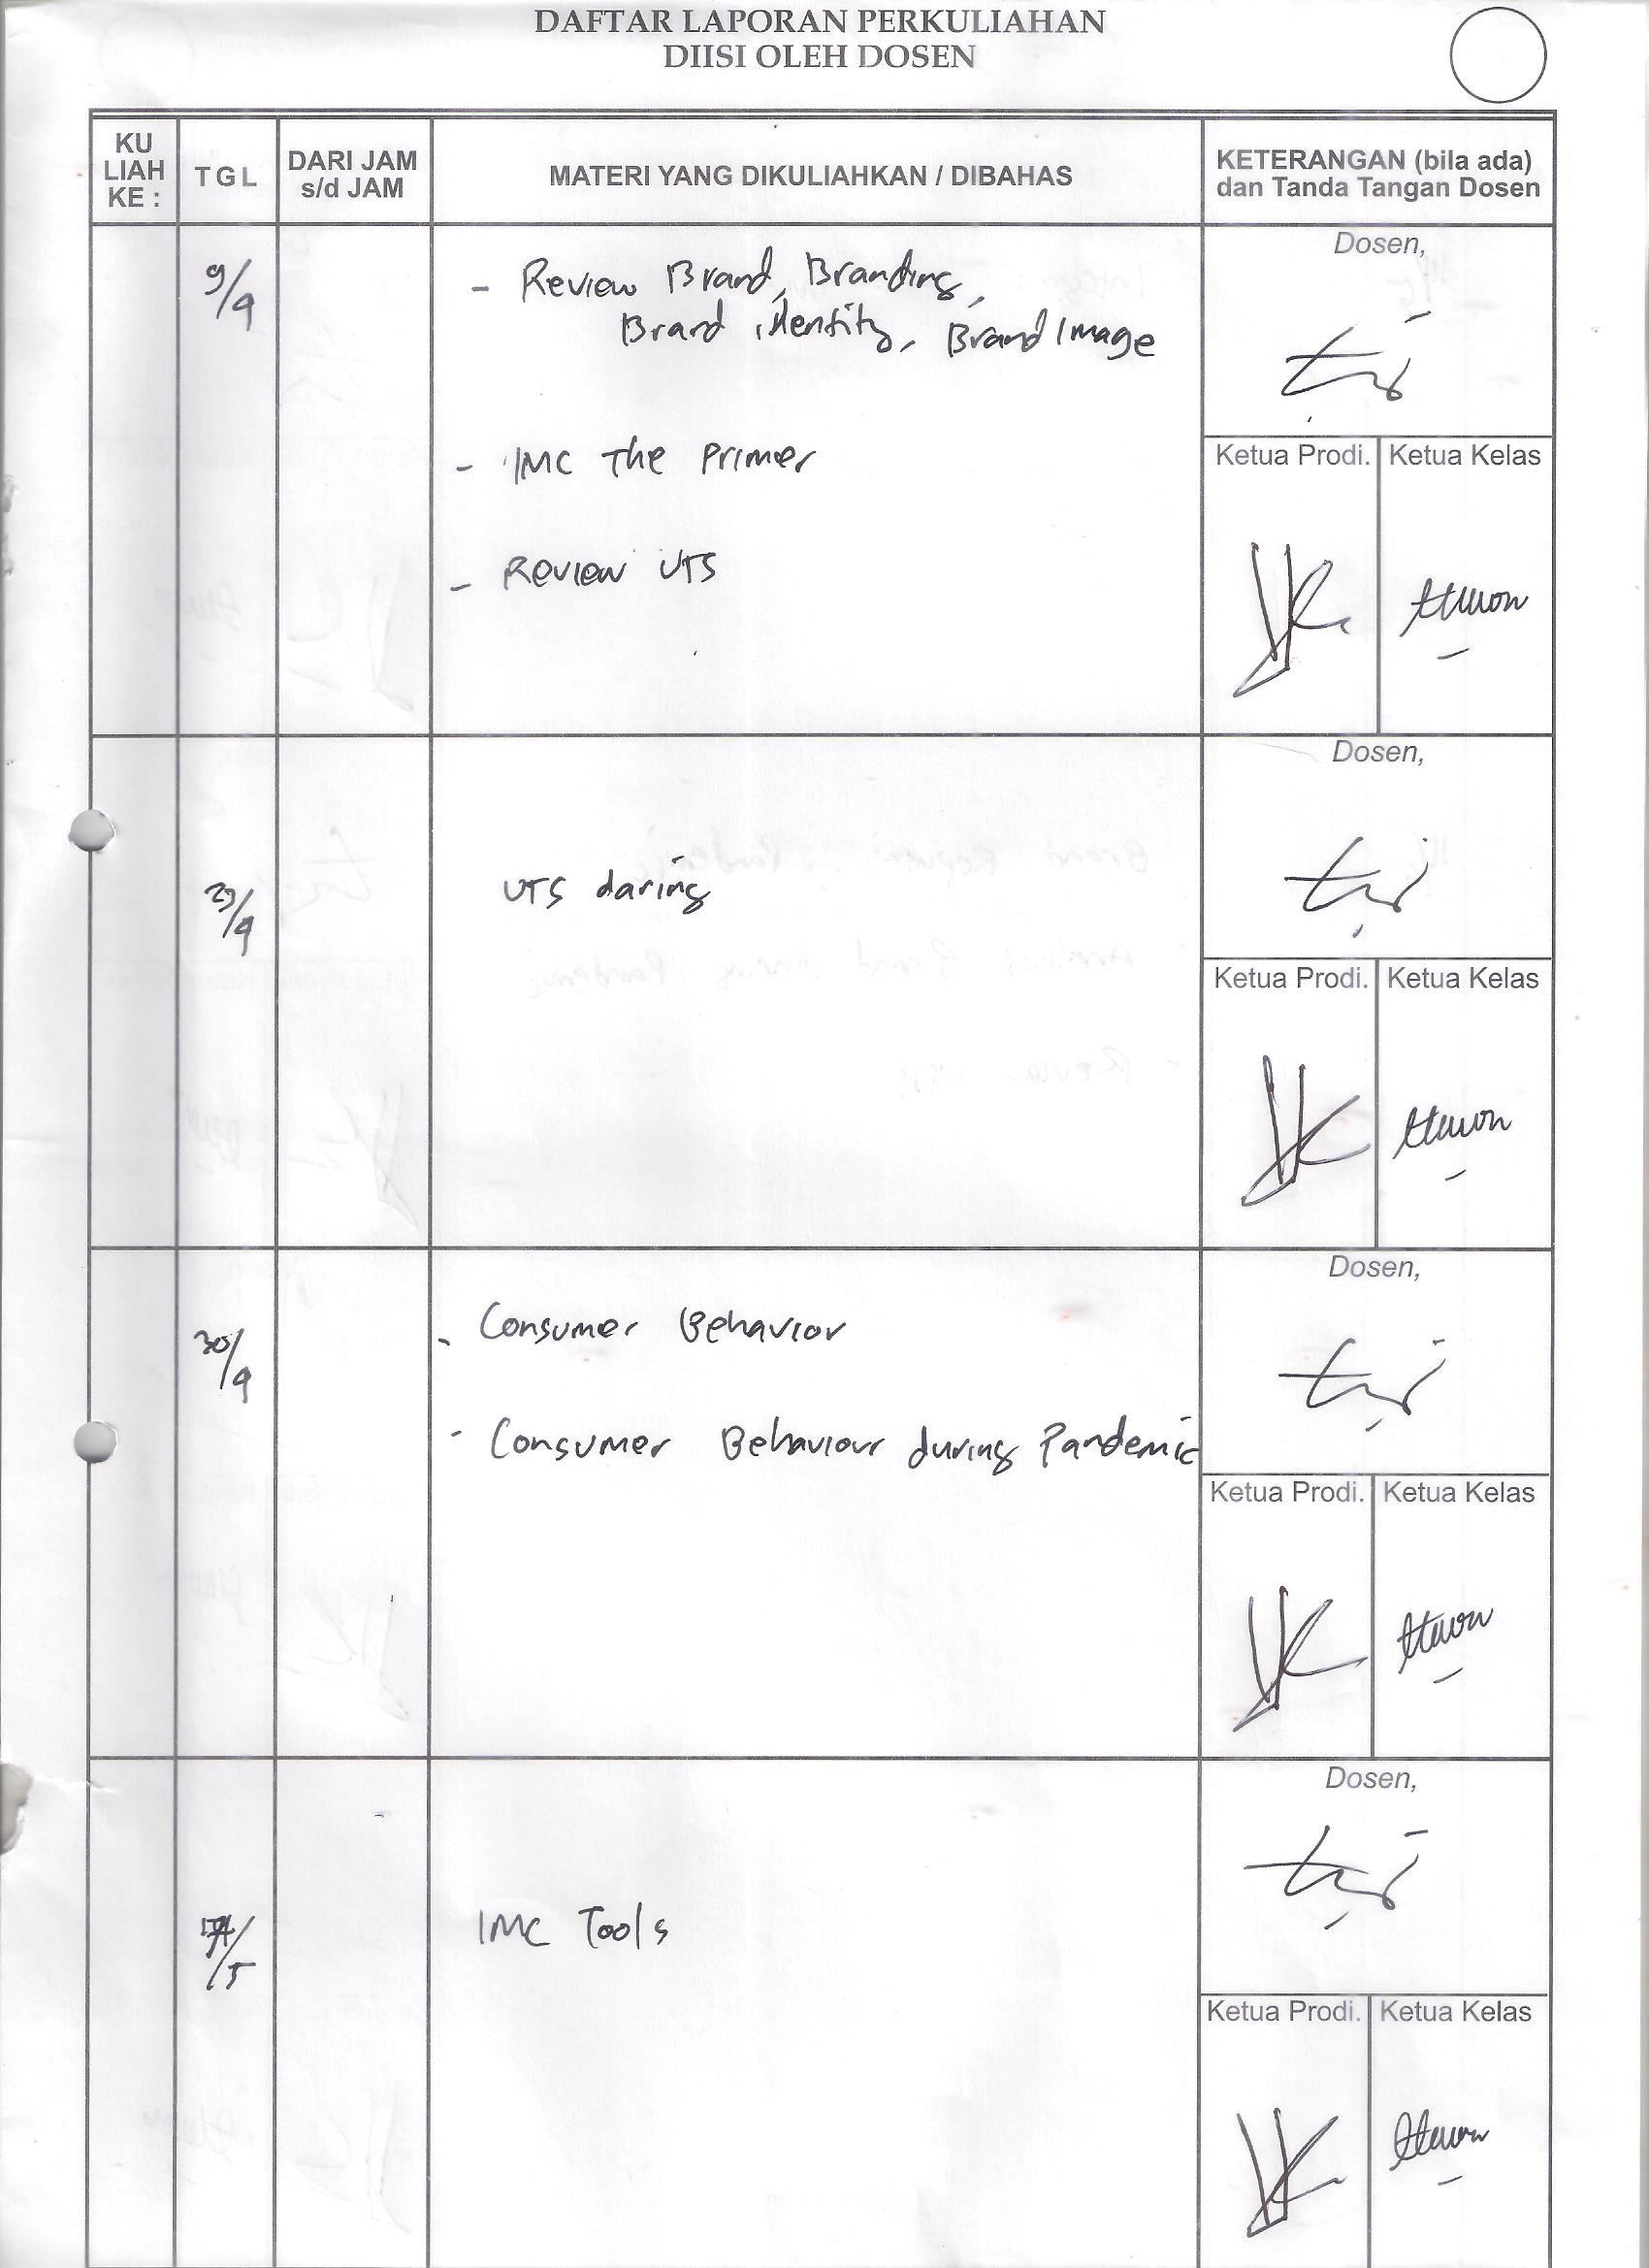 DAFTAR LAPORAN PERKULIAHAN
DIISI OLEH DOSEN
KU
LIAH
KE :
T G L
DARI JAM
s/d JAM
MATERI YANG DIKULIAHKAN / DIBAHAS
KETERANGAN (bila ada)
dan Tanda Tangan Dosen
9/4
- Review Brand, Branding,
Brand identity, Brand Image
- IMC The Primer
- Review UTS
Dosen,
Ketua Prodi.
Ketua Kelas
23/4
UTS daring
Dosen,
Ketua Prodi.
Ketua Kelas
30/4
- Consumer Behavior
- Consumer Behaviour during Pandemic
Dosen,
Ketua Prodi.
Ketua Kelas
IMC Tools
Dosen,
Ketua Prodi.
Ketua Kelas